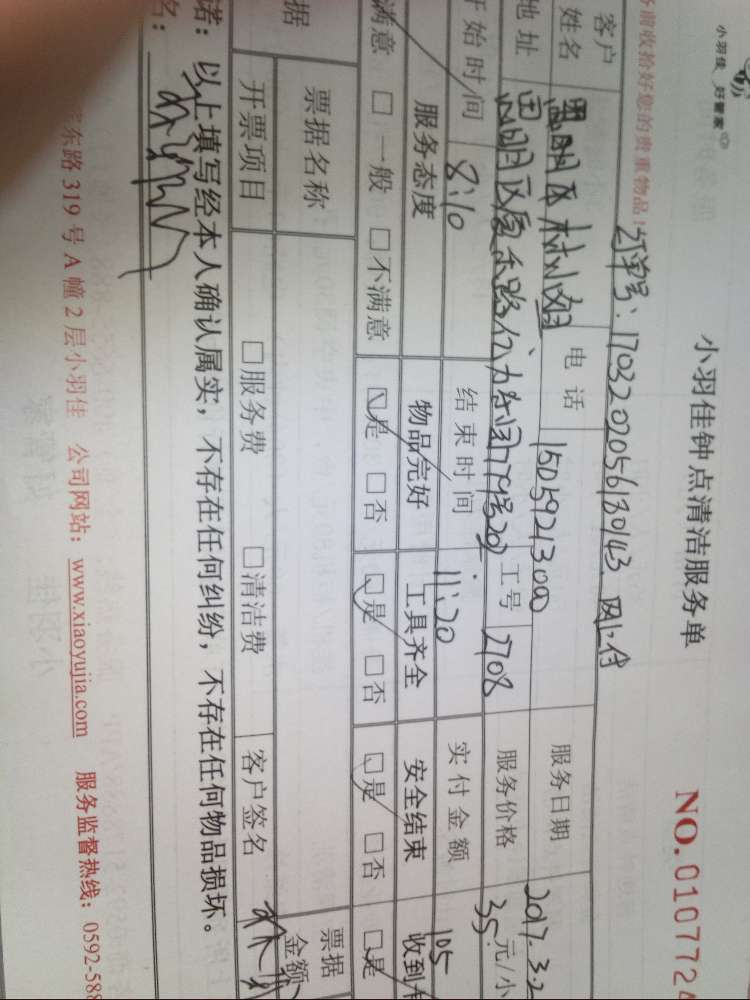 小羽佳 好管家
小羽佳钟点清洁服务单
NO.0107724
前收拾好您的贵重物品!
订单号: 1703202056130143 网上付
客户
姓名
电话
服务日期
2017.3.2
地址
工号 2708
服务价格
35 元/小
开始时间 8:10
结束时间 11:20
实付金额
105
服务态度
物品完好
工具齐全
安全结束
收到
满意 □一般 □不满意
□是 □否
□是 □否
□是 □否
□是
据
票据名称
票据
金额
开票项目
□服务费 □清洁费
客户签名
诺: 以上填写经本人确认属实, 不存在任何纠纷, 不存在任何物品损坏。
名:
东路 319 号 A 幢 2 层小羽佳 公司网站: www.xiaoyujia.com 服务监督热线: 0592-588